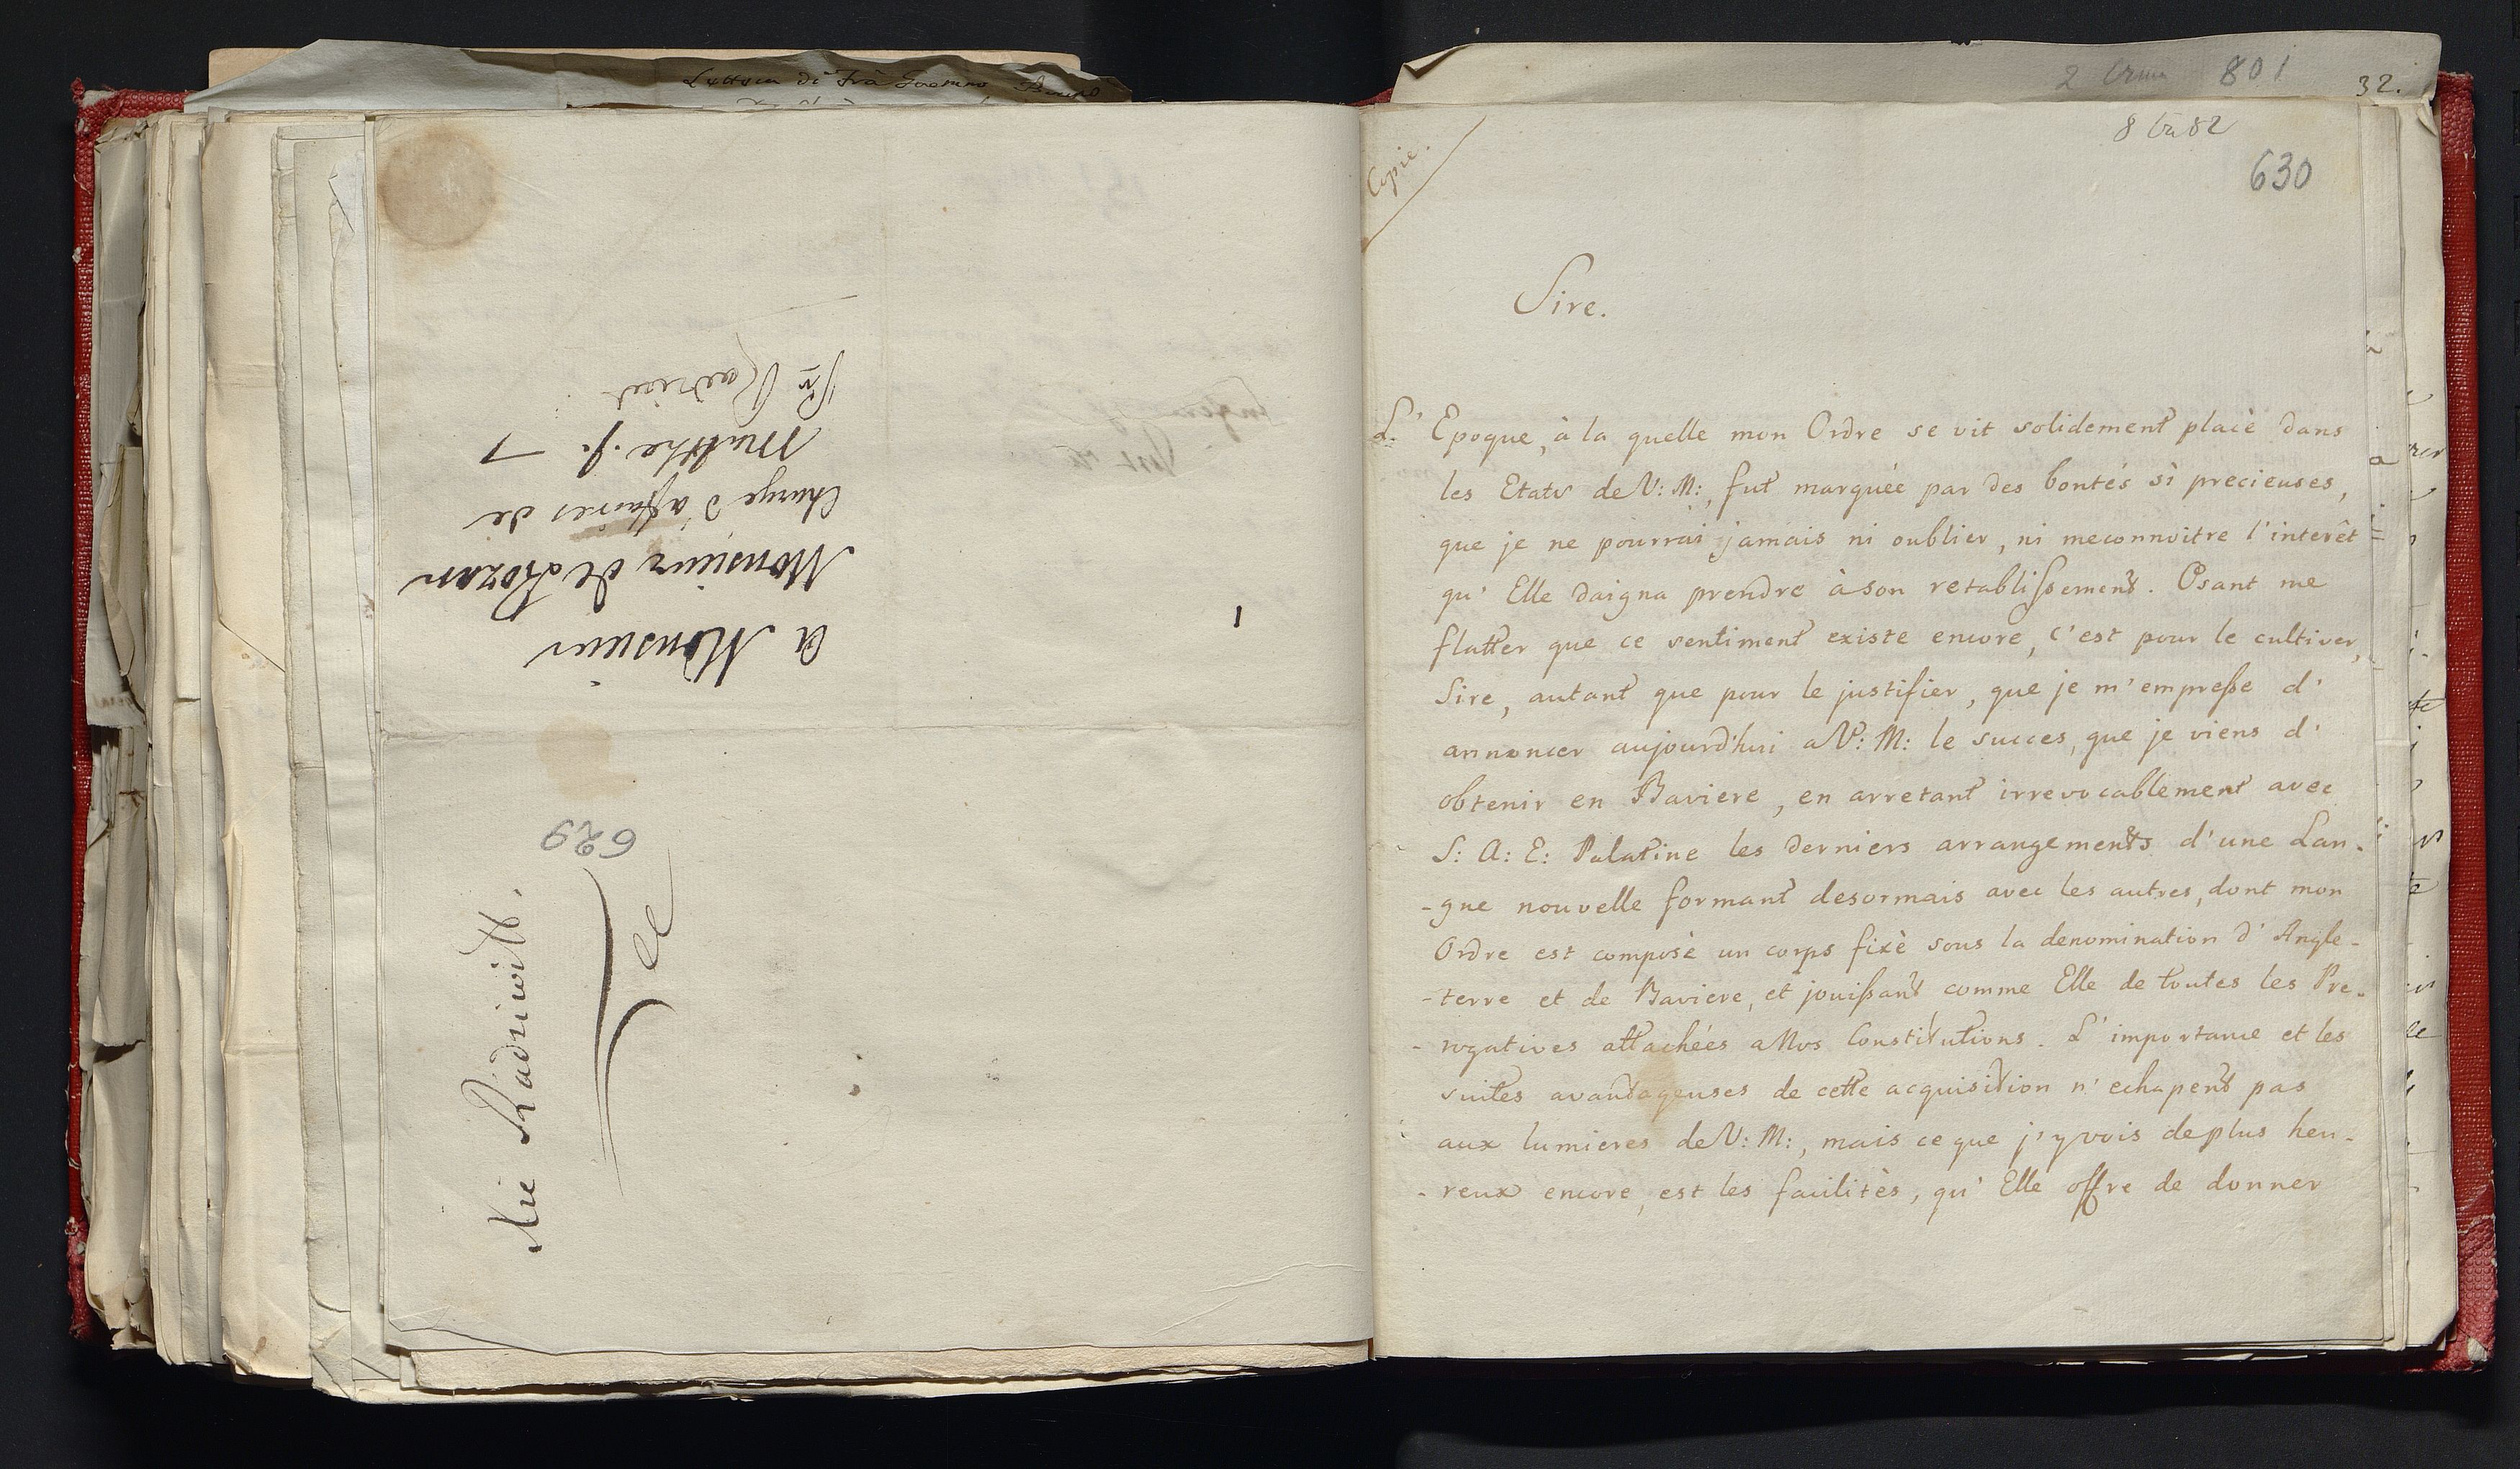 Lettera di Frà
a Monsieur
Monsieur de Rozan
Chargé d'affaires de
Malthe. p.
629
801
32.
Copie.
630
Sire.
L' Epoque, à la quelle mon Ordre se vit solidement placè dans
les Etats de V: M:, fut marquée par des bontés si precieuses,
que je ne pourrai jamais ni oublier, ni meconnoitre l'interêt
qu' Elle daigna prendre à son retablissement. Osant me
flatter que ce sentiment existe encore, c'est pour le cultiver,
Sire, autant que pour le justifier, que je m'empresse d'
annoncer aujourd'hui a V: M: le succes, que je viens d'
obtenir en Baviere, en arretant irrevocablement avec
S: A: E: Palatine les derniers arrangements d'une Lan-
-gue nouvelle formant desormais avec les autres, dont mon
Ordre est composè un corps fixè sous la denomination d' Angle-
-terre et de Baviere, et jouissant comme Elle de toutes les Pre-
-rogatives attachées a Nos Constitutions. L' importance et les
suites avantageuses de cette acquisition n' echapent pas
aux lumieres de V: M:, mais ce que j'y vois de plus heu-
-reux encore, est les facilitès, qu' Elle offre de donner